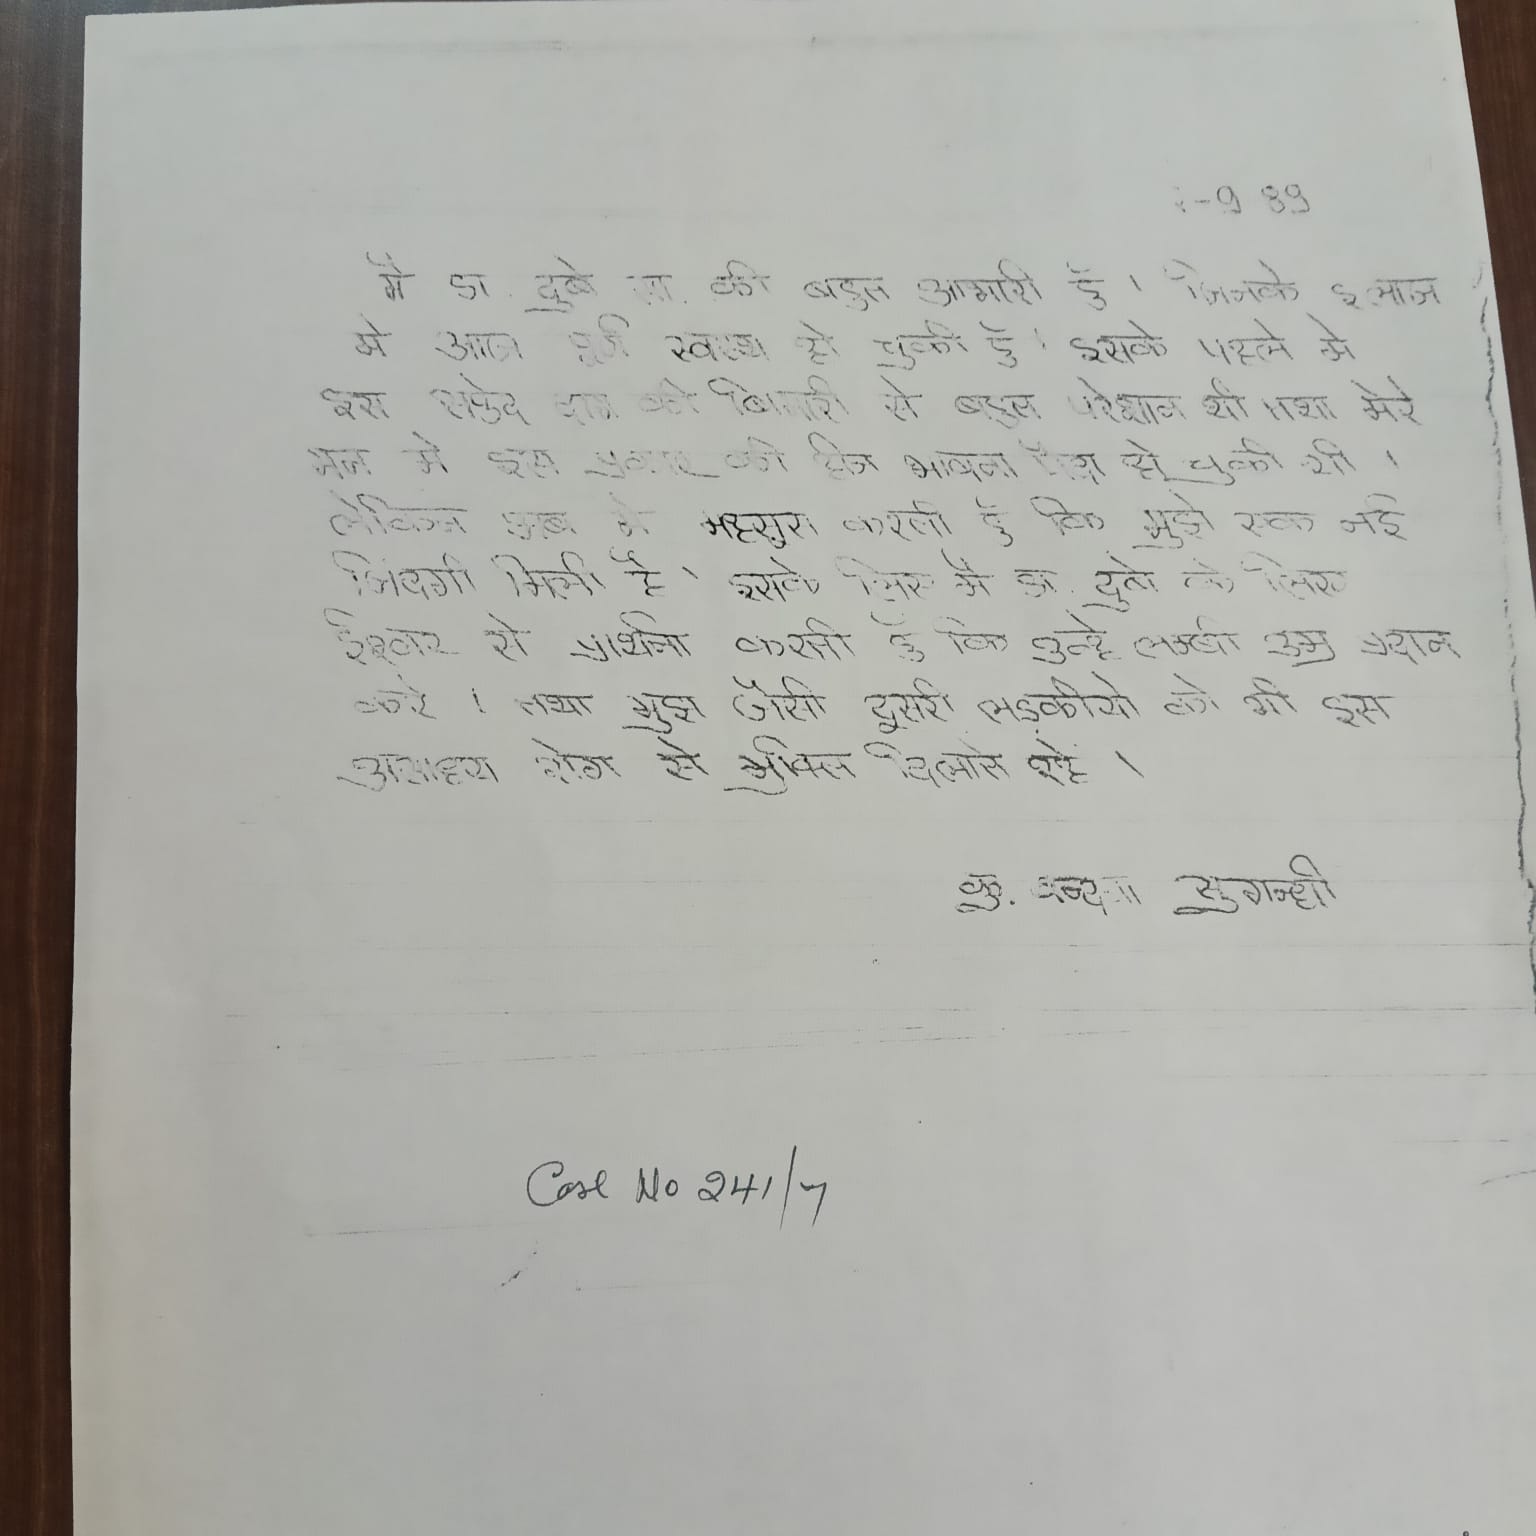 -9 89
मै डा. दुबे सा. की बहुत आभारी हूँ । जिनके इलाज
मे आज पूर्ण स्वस्थ हो चुकी हूँ । इसके पहले मे
इस सफेद दाग की बिमारी से बहुत परेशान थी तथा मेरे
मन मे इस प्रकार की हीन भावना पैदा हो चुकी थी ।
लेकिन अब मे महसुस करती हूँ कि मुझे एक नई
जिंदगी मिली है । इसके लिए मैं डा. दुबे के लिए
ईश्वर से प्रार्थना करती हूँ कि उन्हे लम्बी उम्र प्रदान
करे । तथा मुझ जैसी दूसरी लड़कीयो को भी इस
असाहय रोग से मुक्ति दिलाते रहे ।
कु. वन्दना सुगन्धी
Case No 241/7